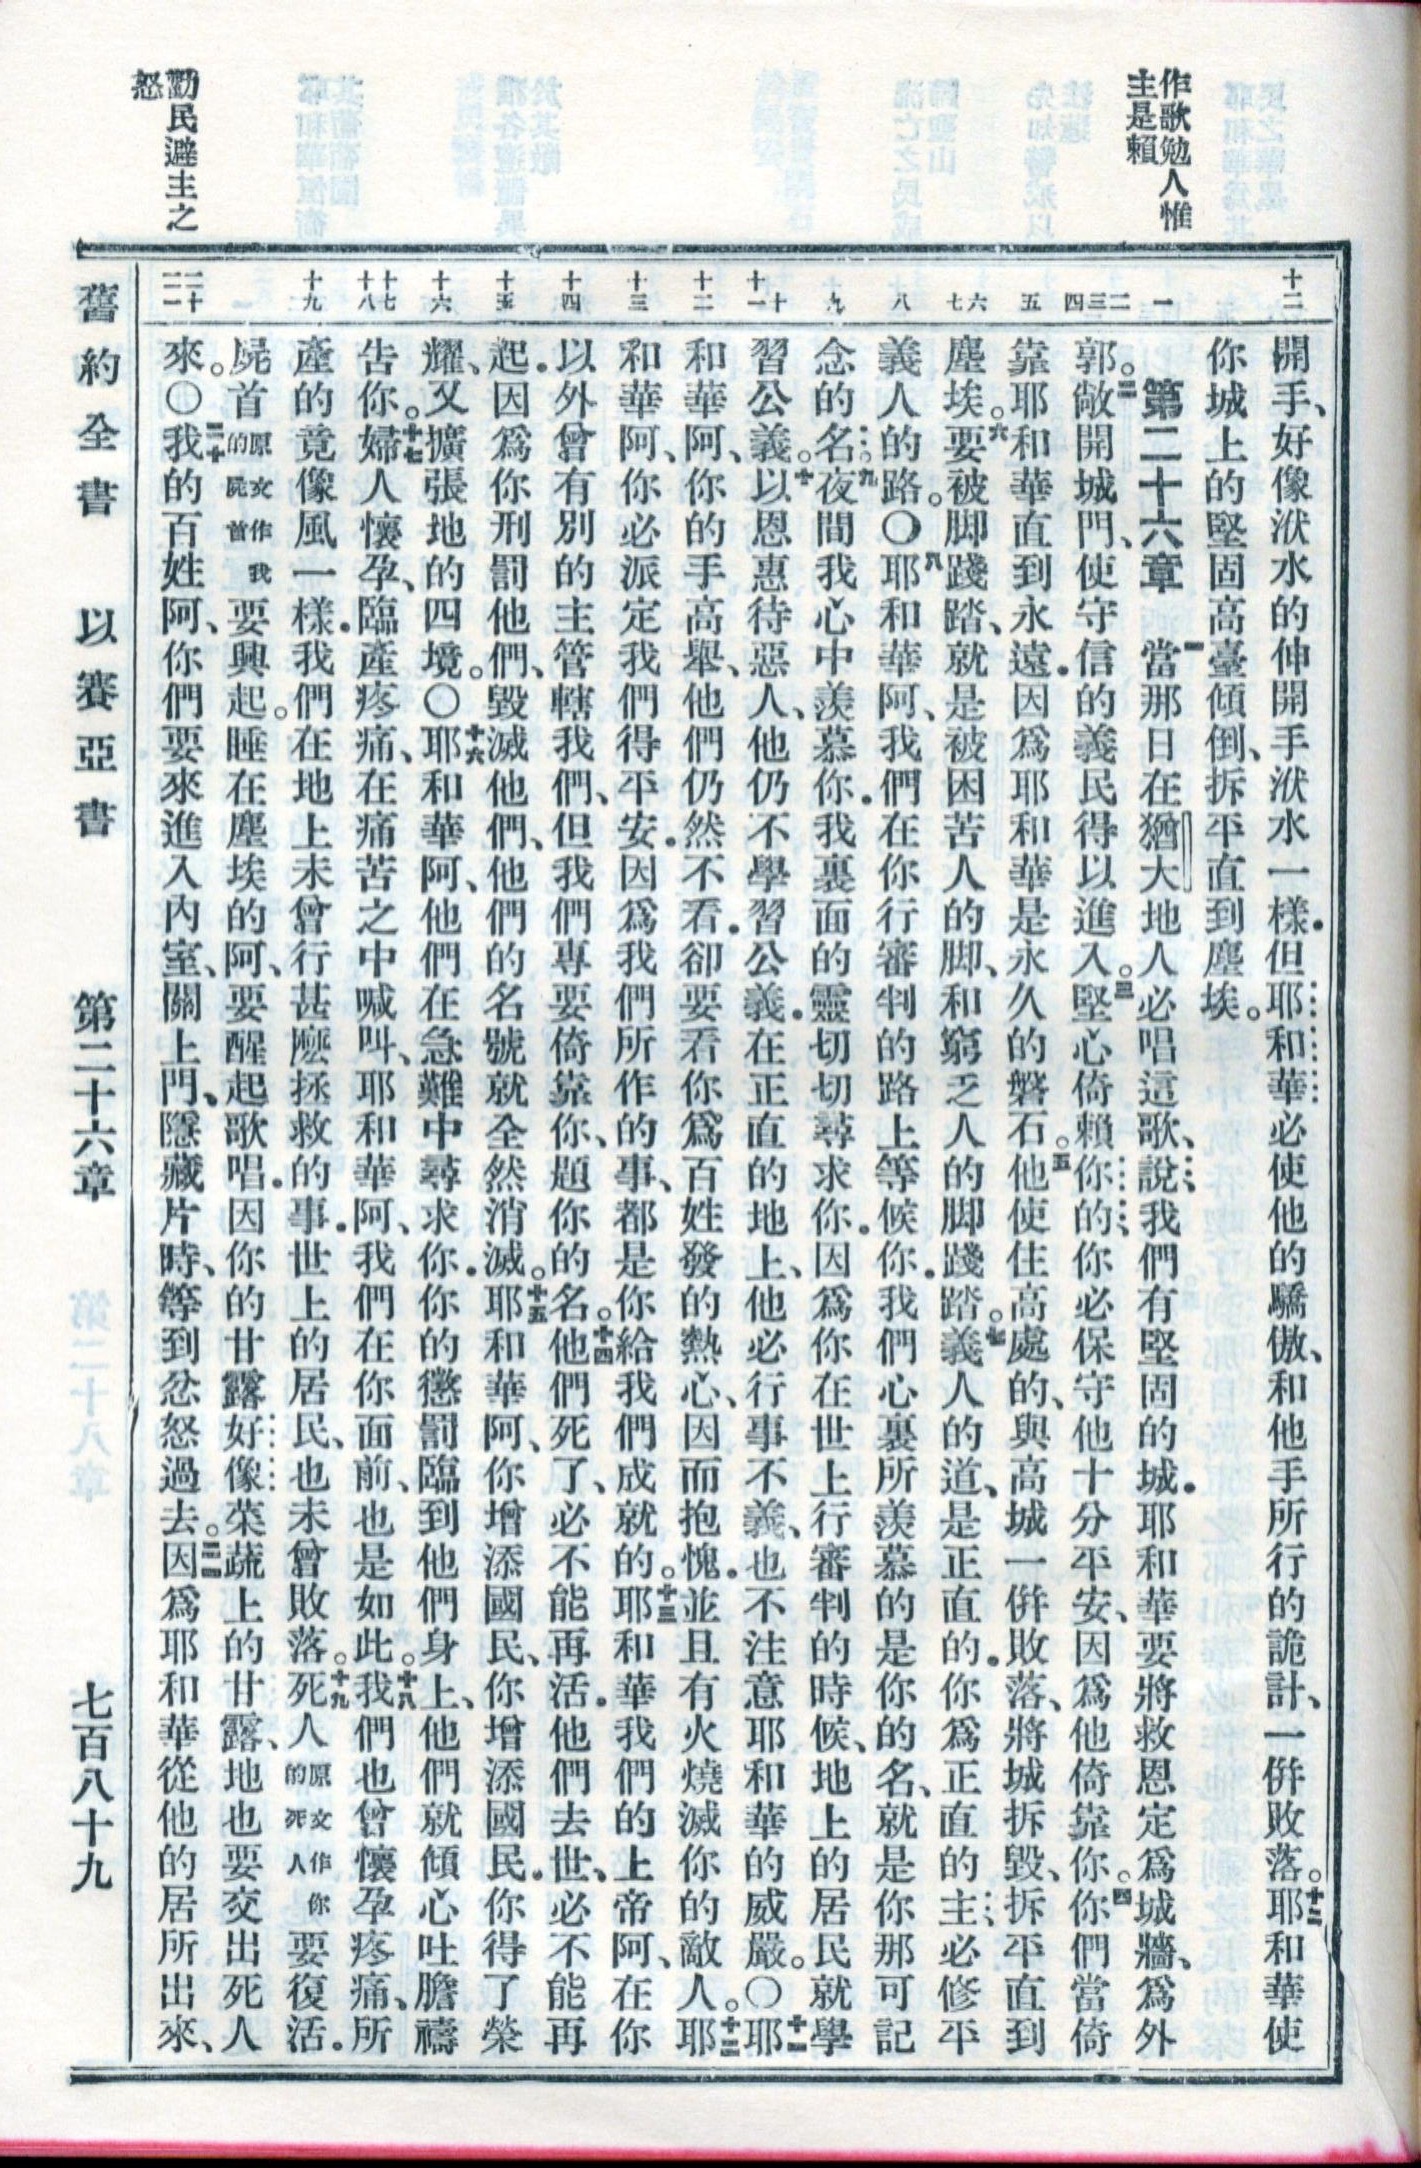 作歌勉人惟
主是賴
勸民避主之
怒
十二
一
二
三
四
五
六
七
八
九
十
十一
十二
十三
十四
十五
十六
十七
十八
十九
二十
二一
開手、好像洑水的伸開手洑水一樣．但耶和華必使他的驕傲、和他手所行的詭計、一倂敗落。十二耶和華使
你城上的堅固高臺傾倒、拆平直到塵埃。
第二十六章 一當那日在猶大地人必唱這歌、說我們有堅固的城．耶和華要將救恩定爲城牆、爲外
郭。二敞開城門、使守信的義民得以進入。三堅心倚賴你的、你必保守他十分平安、因爲他倚靠你。四你們當倚
靠耶和華直到永遠．因爲耶和華是永久的磐石。五他使住高處的、與高城一倂敗落、將城拆毀、拆平直到
塵埃。六要被脚踐踏、就是被困苦人的脚、和窮乏人的脚踐踏。七義人的道、是正直的．你爲正直的主、必修平
義人的路。〇八耶和華阿、我們在你行審判的路上等候你．我們心裏所羨慕的是你的名、就是你那可記
念的名。九夜間我心中羨慕你．我裏面的靈切切尋求你．因爲你在世上行審判的時候、地上的居民就學
習公義。十以恩惠待惡人、他仍不學習公義．在正直的地上、他必行事不義、也不注意耶和華的威嚴。〇十一耶
和華阿、你的手高舉、他們仍然不看．卻要看你爲百姓發的熱心、因而抱愧．並且有火燒滅你的敵人。十二耶
和華阿、你必派定我們得平安．因爲我們所作的事、都是你給我們成就的。十三耶和華我們的上帝阿、在你
以外曾有別的主管轄我們、但我們專要倚靠你、題你的名。十四他們死了、必不能再活．他們去世、必不能再
起．因爲你刑罰他們、毀滅他們、他們的名號就全然消滅。十五耶和華阿、你增添國民、你增添國民．你得了榮
耀、又擴張地的四境。〇十六耶和華阿、他們在急難中尋求你．你的懲罰臨到他們身上、他們就傾心吐膽禱
告你。十七婦人懷孕、臨產疼痛、在痛苦之中喊叫、耶和華阿、我們在你面前、也是如此。十八我們也曾懷孕疼痛、所
產的竟像風一樣．我們在地上未曾行甚麼拯救的事．世上的居民、也未曾敗落。十九死人原文作你的死人要復活．
屍首原文作我的屍首要興起。睡在塵埃的阿、要醒起歌唱．因你的甘露好像菜蔬上的甘露、地也要交出死人
來。〇二十我的百姓阿、你們要來進入內室、關上門、隱藏片時、等到忿怒過去。二一因爲耶和華從他的居所出來、
舊約全書 以賽亞書 第二十六章 七百八十九